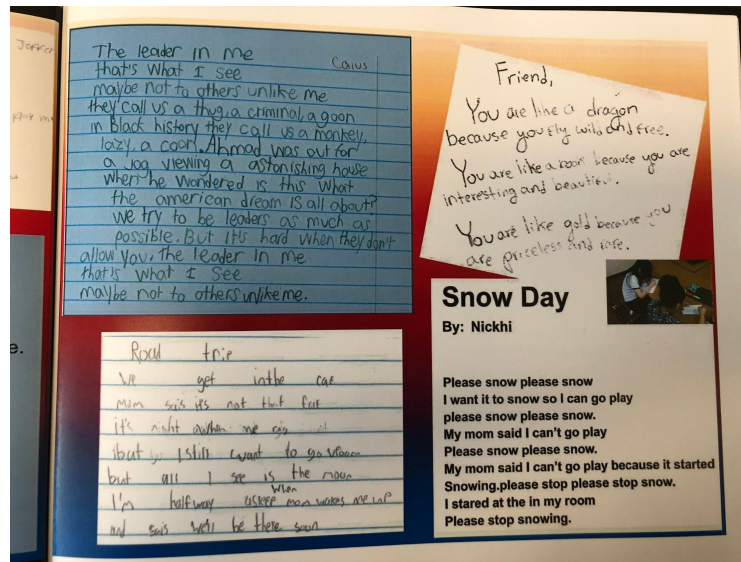 The leader in me
Caius
that's what I see
maybe not to others unlike me
they call us a thug, a criminal, a goon
in Black history they call us a monkey,
lazy, a coon. Ahmad was out for
a jog viewing a astonishing house
when he wondered is this what
the american dream is all about?
we try to be leaders as much as
possible. But it's hard when they don't
allow you. The leader in me
that's what I see
maybe not to others unlike me.
Friend,
You are like a dragon
because you fly wild and free.
You are like a book because you are
interesting and beautiful.
You are like gold because you
are priceless and rare.
Road trip
We get in the car
mom sais it's not that far
it's night when we
but I still want to go vroom
but all I see is the moon
I'm halfway asleep when mom wakes me up
and sais we'll be there soon
Snow Day
By: Nickhi
Please snow please snow
I want it to snow so I can go play
please snow please snow.
My mom said I can't go play
Please snow please snow.
My mom said I can't go play because it started
Snowing.please stop please stop snow.
I stared at the in my room
Please stop snowing.
e.